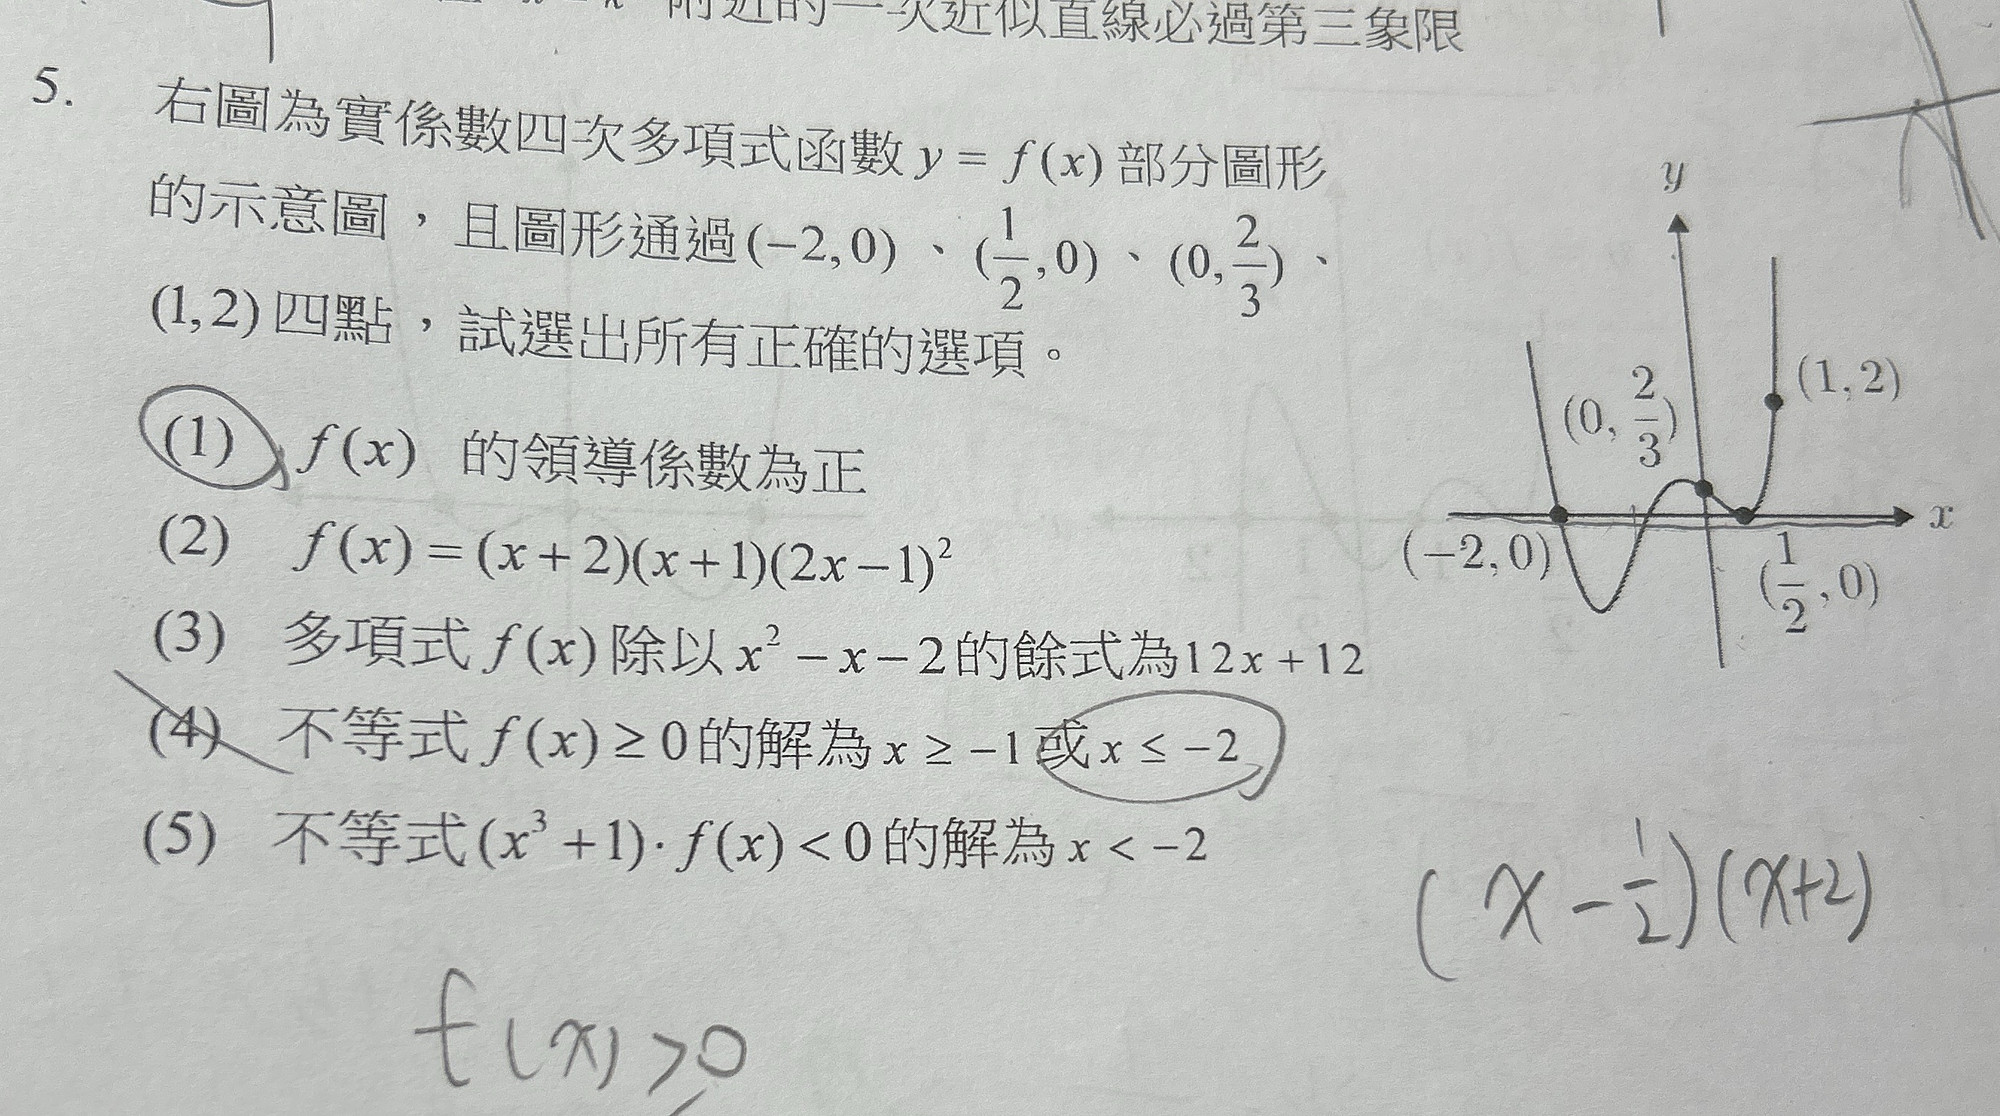 附近的一次近似直線必過第三象限
5. 右圖為實係數四次多項式函數 y = f(x) 部分圖形
的示意圖，且圖形通過(−2,0)、(1/2,0)、(0,2/3)、
(1,2)四點，試選出所有正確的選項。
(1) f(x) 的領導係數為正
(2) f(x) = (x+2)(x+1)(2x−1)²
(3) 多項式 f(x) 除以 x² − x − 2 的餘式為12x + 12
(4) 不等式 f(x) ≥ 0 的解為 x ≥ −1 或 x ≤ −2
(5) 不等式 (x³ + 1)· f(x) < 0 的解為 x < −2
y
(1,2)
(0, 2/3)
x
(−2,0)
(1/2,0)
(x − 1/2)(x+2)
f(x) ≥ 0